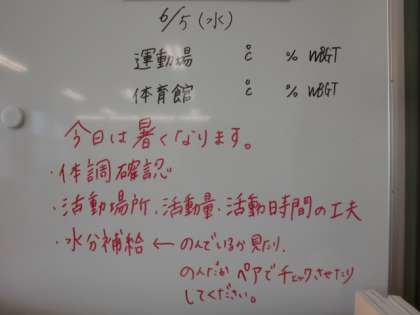 6/5 (水)
運動場 ℃ % WBGT
体育館 ℃ % WBGT
今日は暑くなります。
・体調確認
・活動場所、活動量、活動時間の工夫
・水分補給 ← のんでいるか見たり、
のんだか ペアでチェックさせたり
してください。